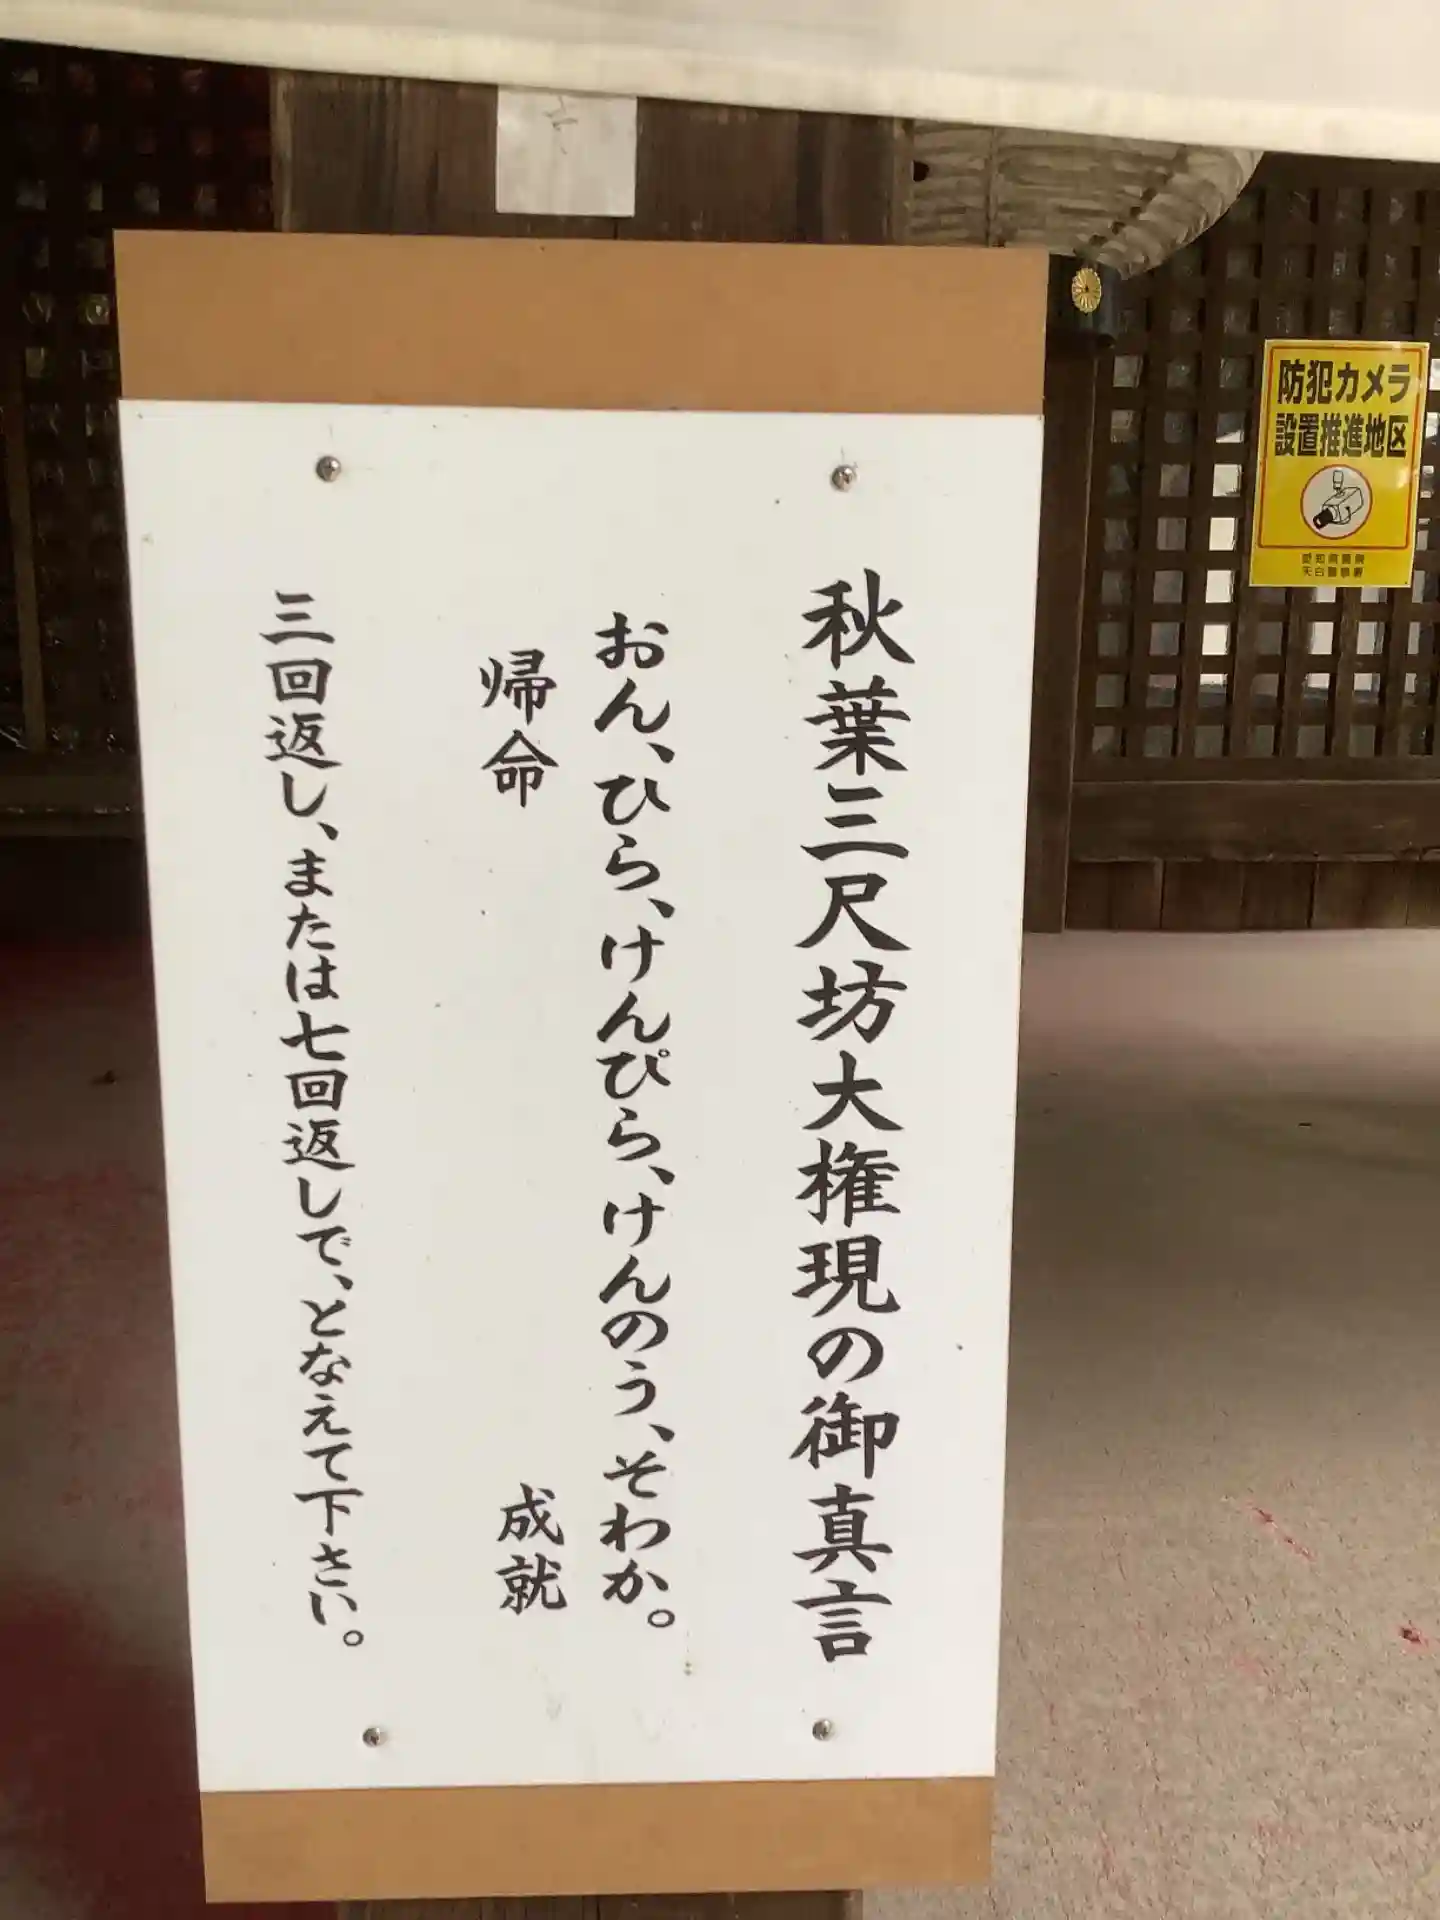 秋葉三尺坊大権現の御真言
おん、ひら、けんぴら、けんのう、そわか。
帰命 成就
三回返し、または七回返しで、となえて下さい。
防犯カメラ
設置推進地区
愛知県警察
天白警察署